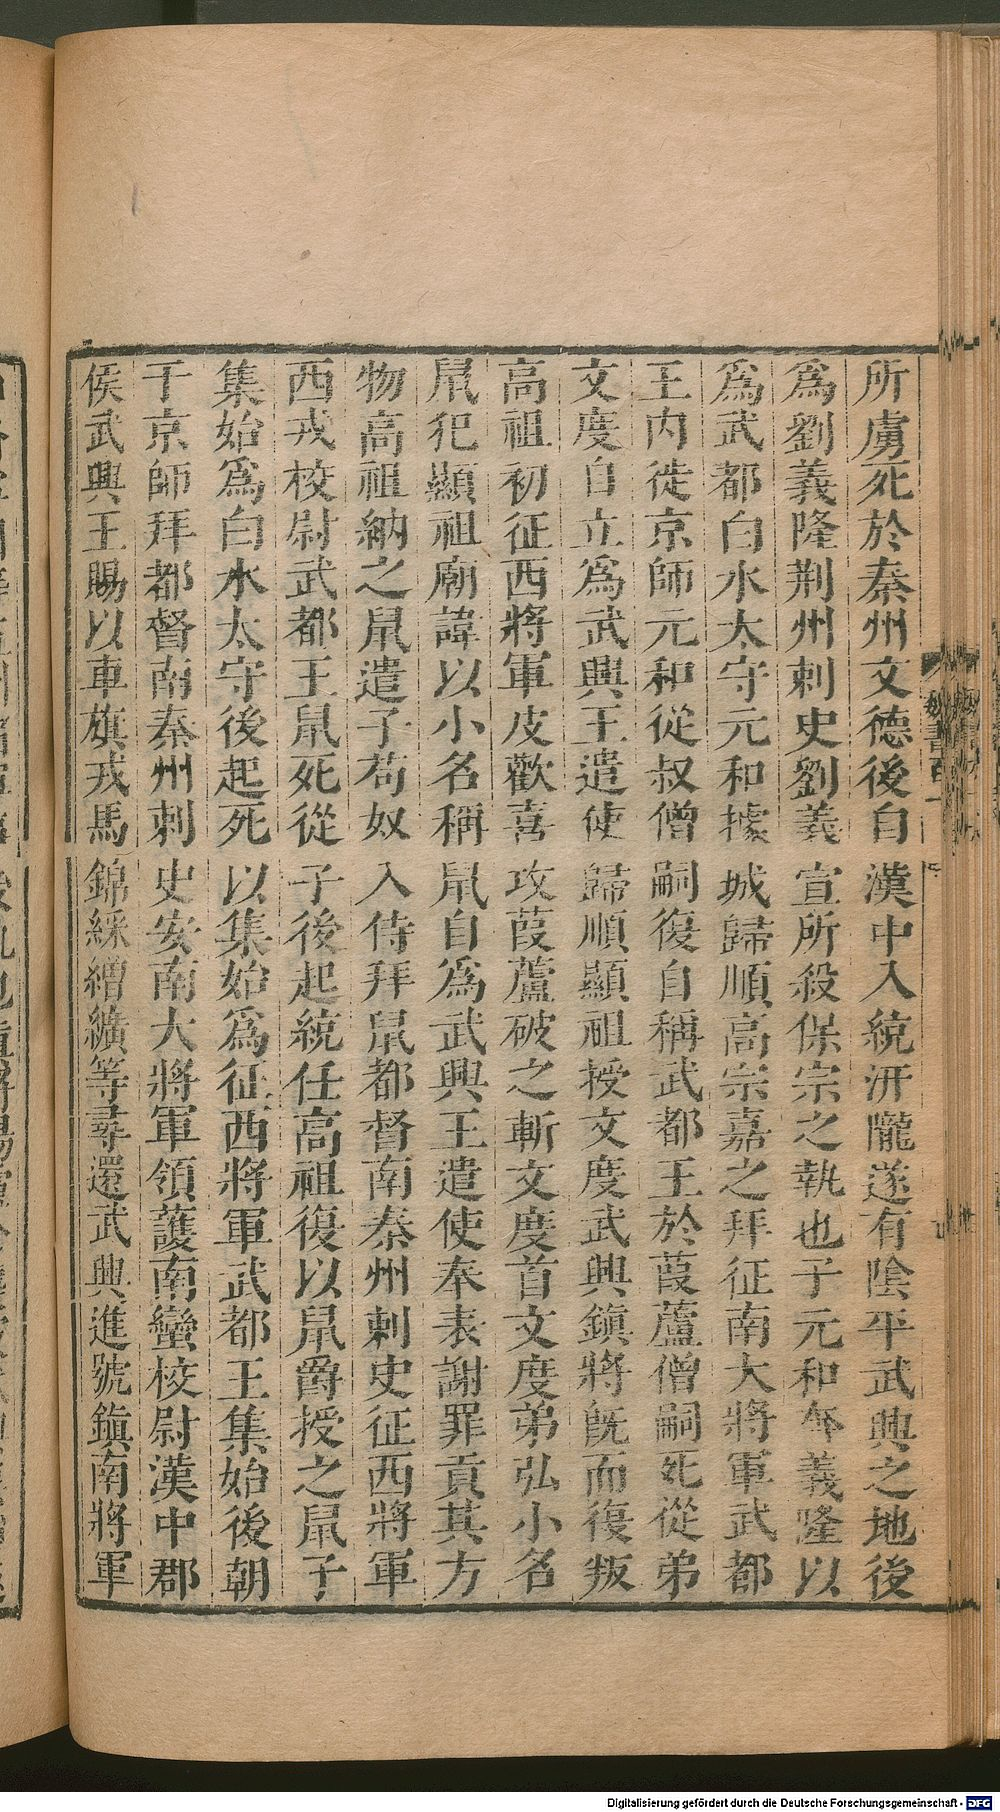 所虜死於秦州文德後自漢中入統汧隴遂有陰平武興之地後
爲劉義隆荆州刺史劉義宣所殺保宗之執也子元和奔義隆以
爲武都白水太守元和據城歸順高宗嘉之拜征南大將軍武都
王內徙京師元和從叔僧嗣復自稱武都王於葭蘆僧嗣死從弟
文度自立爲武興王遣使歸順顯祖授文度武興鎮將旣而復叛
高祖初征西將軍皮歡喜攻葭蘆破之斬文度首文度弟弘小名
鼠犯顯祖廟諱以小名稱鼠自爲武興王遣使奉表謝罪貢其方
物高祖納之鼠遣子苟奴入侍拜鼠都督南秦州刺史征西將軍
西戎校尉武都王鼠死從子後起統任高祖復以鼠爵授之鼠子
集始爲白水太守後起死以集始爲征西將軍武都王集始後朝
于京師拜都督南秦州刺史安南大將軍領護南蠻校尉漢中郡
侯武興王賜以車旗戎馬錦綵繒纊等尋還武興進號鎮南將軍
Digitalisierung gefördert durch die Deutsche Forschungsgemeinschaft - DFG